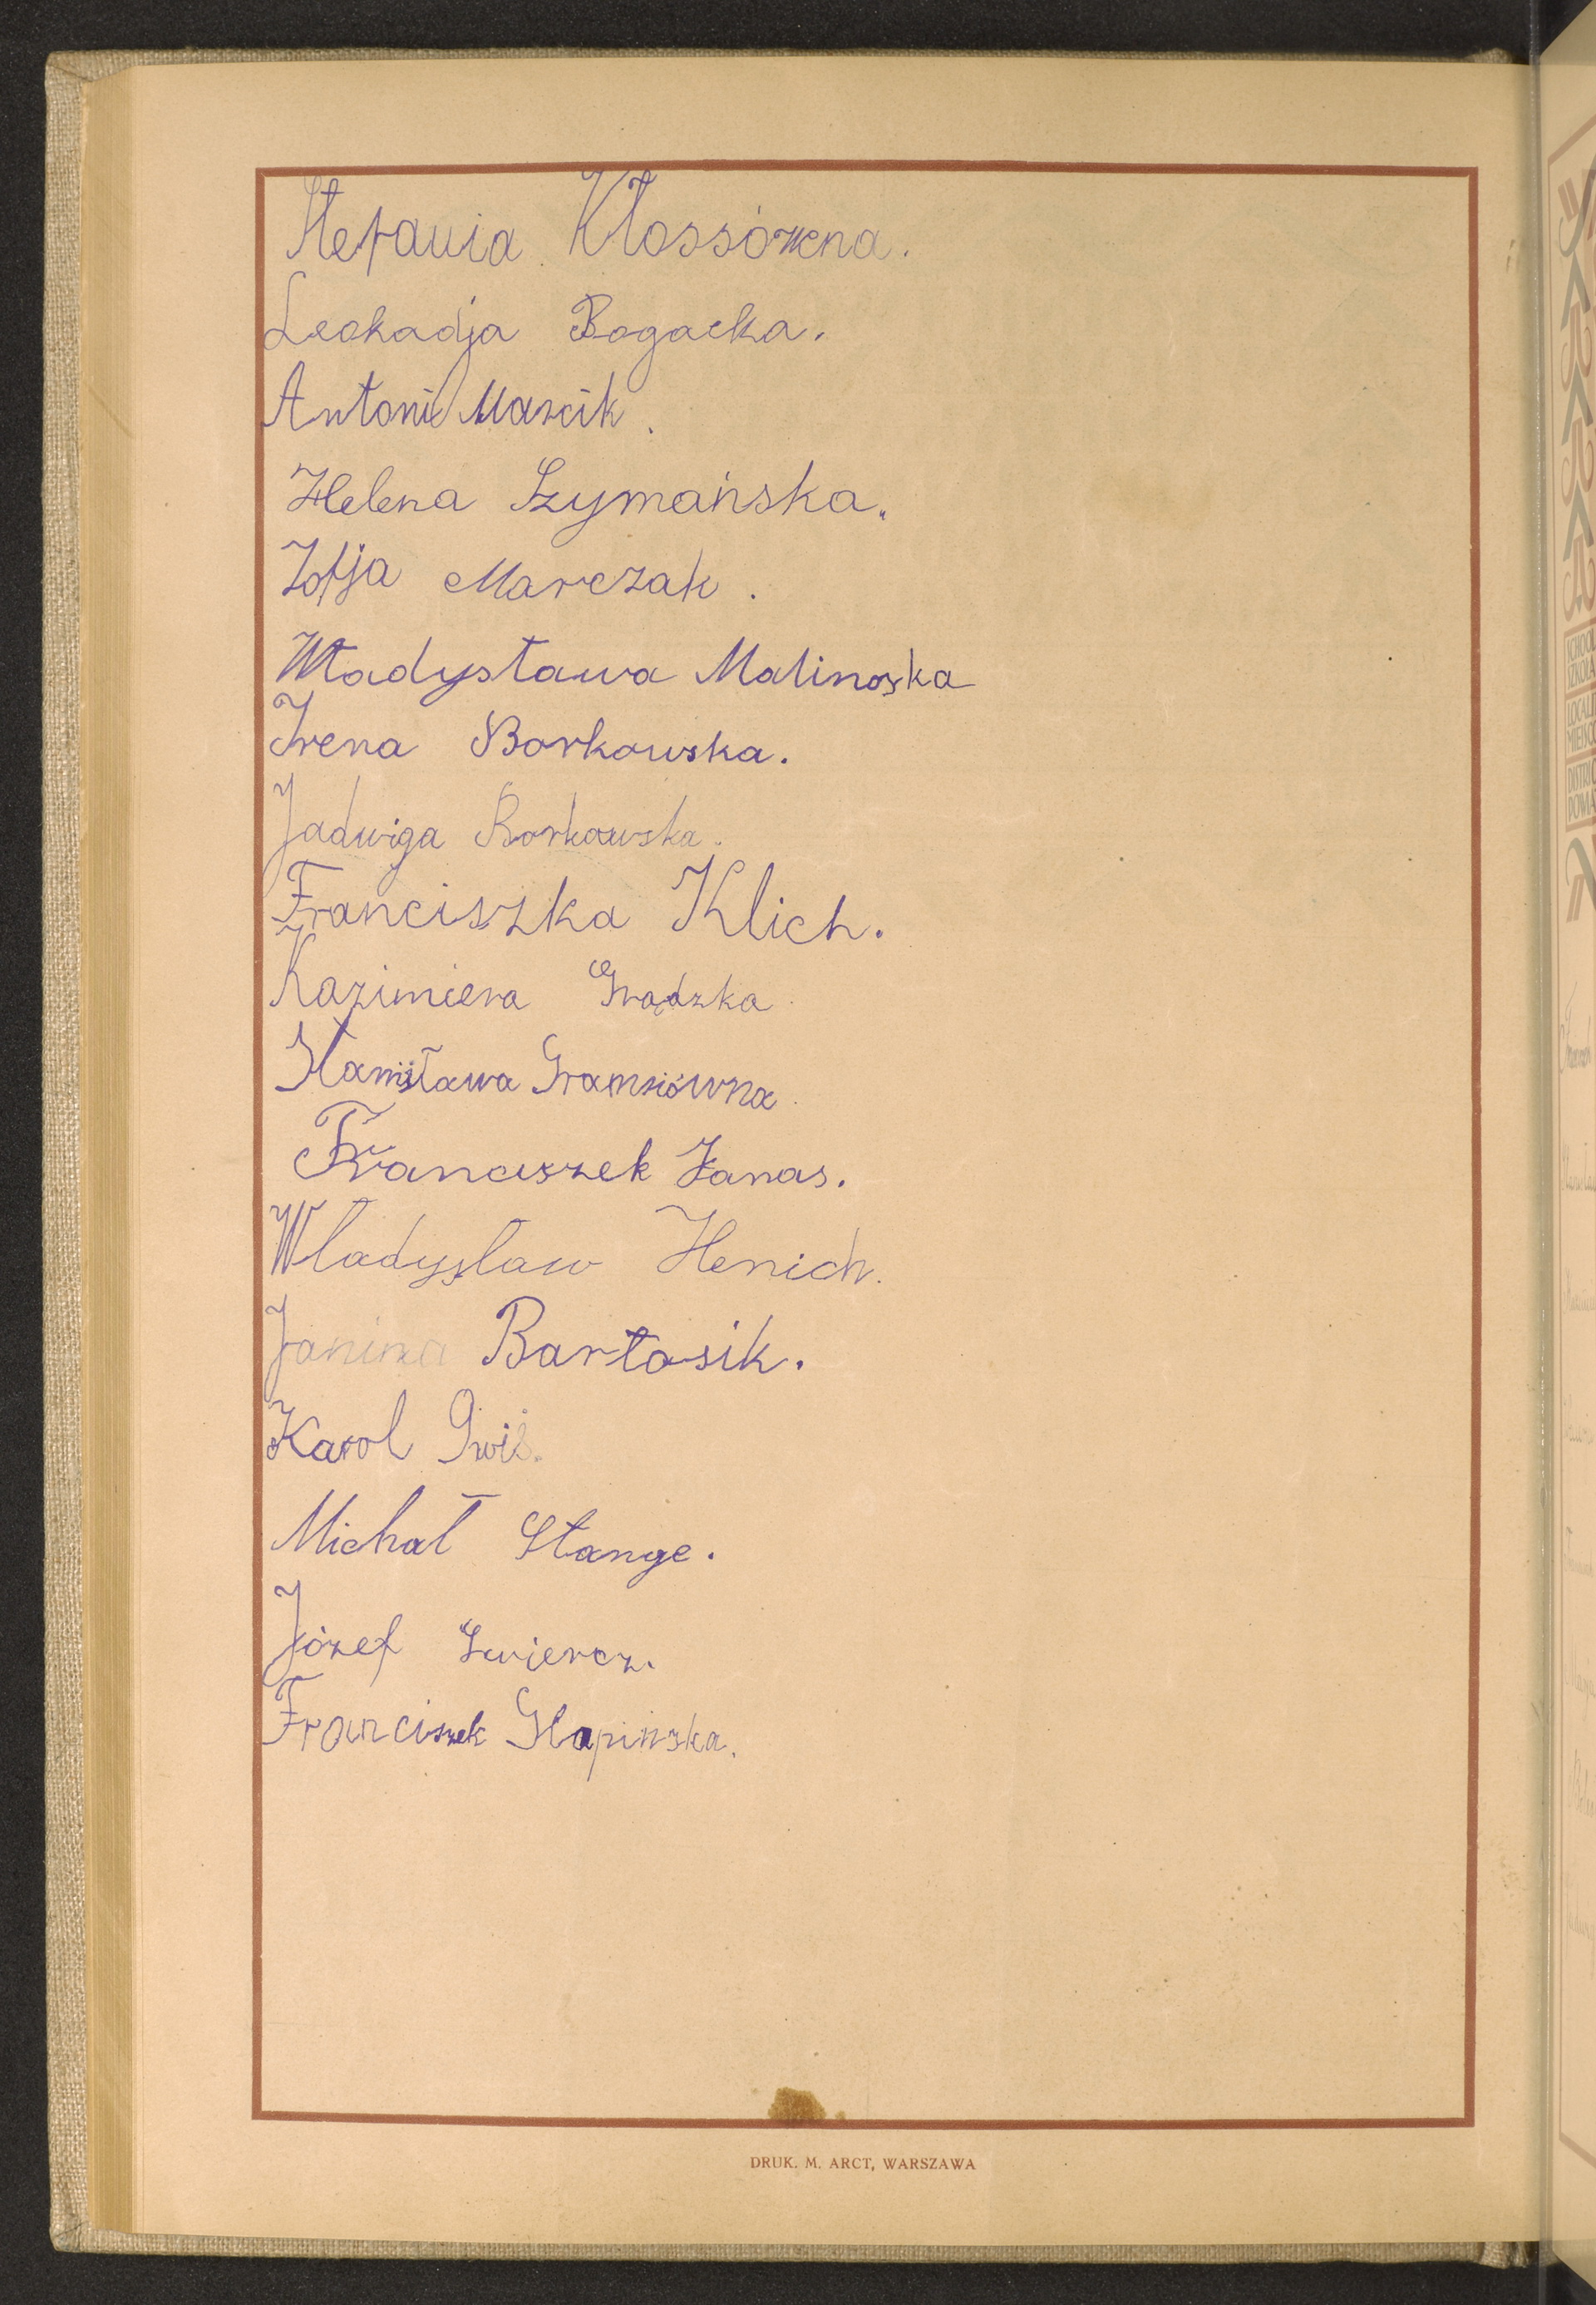 Stefania Kłossówna.
Leokadja Bogacka.
Antoni Marcik.
Helena Szymańska.
Zofja Marczak.
Władysława Malinoska
Irena Borkowska.
Jadwiga Borkowska.
Franciszka Klich.
Kazimiera Grądzka.
Stanisława Gramsiówna.
Franciszek Janas.
Wladyslaw Henich.
Janina Bartosik.
Karol
Michał Stange.
Józef Świercz.
Franciszek Glapińska.
DRUK. M. ARCT, WARSZAWA